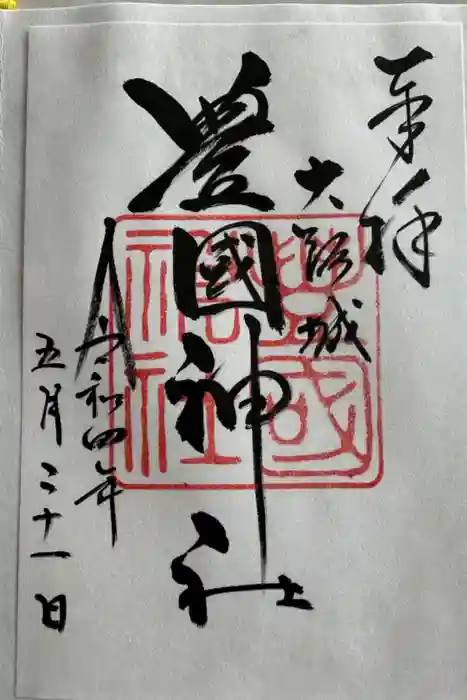 奉拝
大阪城
豊國神社
令和四年
五月二十一日
豊國
神社